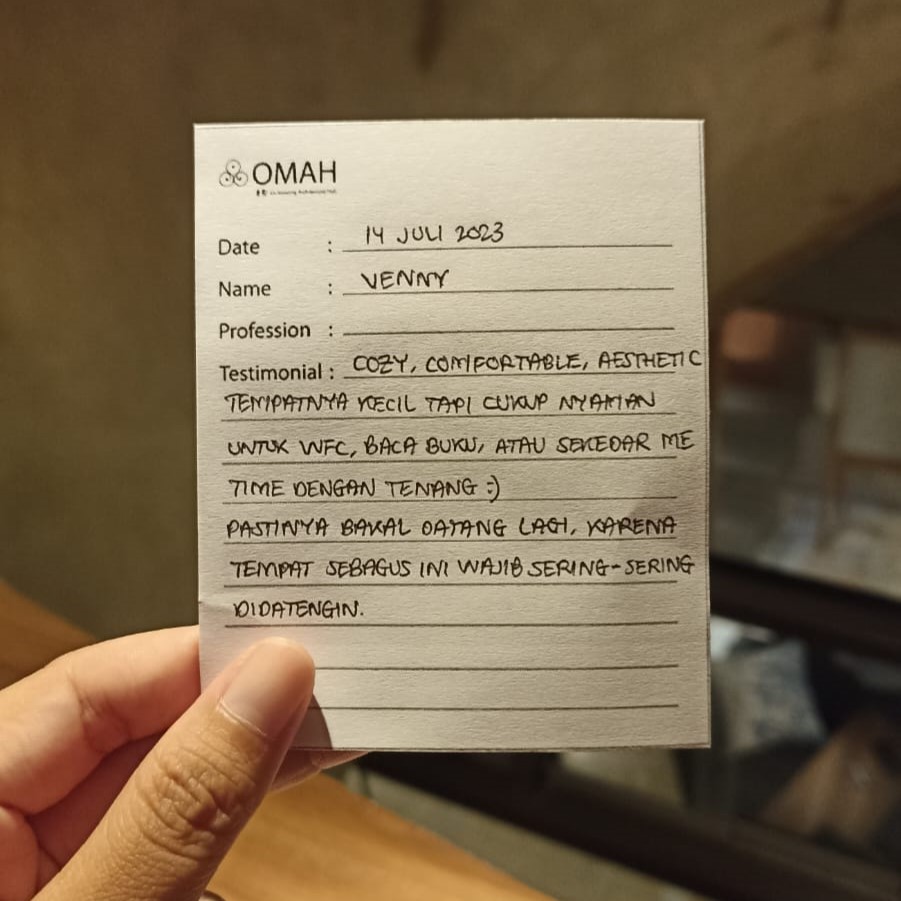 OMAH
Date : 14 JULI 2023
Name : VENNY
Profession :
Testimonial : COZY, COMFORTABLE, AESTHETIC
TEMPATNYA KECIL TAPI CUKUP NYAMAN
UNTUK WFC, BACA BUKU, ATAU SEKEDAR ME
TIME DENGAN TENANG :)
PASTINYA BAKAL DATANG LAGI, KARENA
TEMPAT SEBAGUS INI WAJIB SERING-SERING
DIDATENGIN.